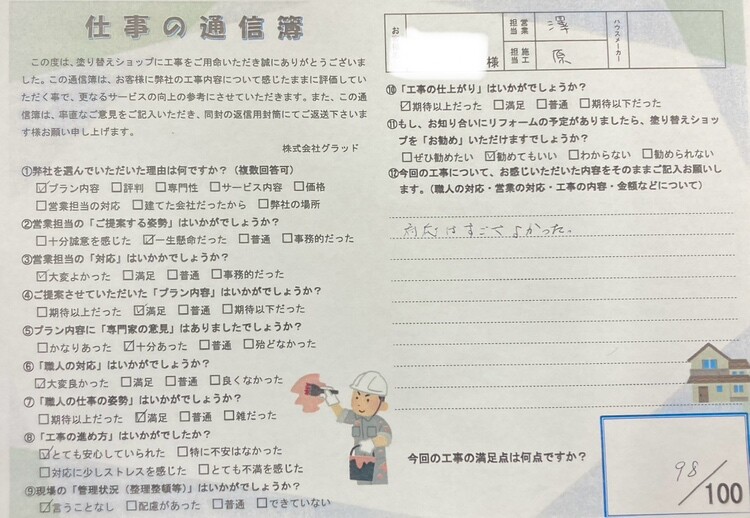 仕事の通信簿
この度は、塗り替えショップに工事をご用命いただき誠にありがとうございま
した。この通信簿は、お客様に弊社の工事内容について感じたままに評価してい
ただく事で、更なるサービスの向上の参考にさせていただきます。また、この通
信簿は、率直なご意見をご記入いただき、同封の返信用封筒にてご返送下さいま
す様お願い申し上げます。
株式会社グラッド
①弊社を選んでいただいた理由は何ですか?(複数回答可)
☑プラン内容 □評判 □専門性 □サービス内容 □価格
□営業担当の対応 □建てた会社だったから □弊社の場所
②営業担当の「ご提案する姿勢」はいかがでしょうか?
□十分誠意を感じた ☑一生懸命だった □普通 □事務的だった
③営業担当の「対応」はいかかでしょうか?
☑大変よかった □満足 □普通 □事務的だった
④ご提案させていただいた「プラン内容」はいかがでしょうか?
□期待以上だった ☑満足 □普通 □期待以下だった
⑤プラン内容に「専門家の意見」はありましたでしょうか?
□かなりあった ☑十分あった □普通 □殆どなかった
⑥「職人の対応」はいかがでしょうか?
☑大変良かった □満足 □普通 □良くなかった
⑦「職人の仕事の姿勢」はいかがでしょうか?
□期待以上だった ☑満足 □普通 □雑だった
⑧「工事の進め方」はいかがでしたか?
☑とても安心していられた □特に不安はなかった
□対応に少しストレスを感じた □とても不満を感じた
⑨現場の「管理状況(整理整頓等)」はいかがでしょうか?
☑言うことなし □配慮があった □普通 □できていない
お
様
営業担当
澤
施工担当
原
ハウスメーカー
⑩「工事の仕上がり」はいかがでしょうか?
☑期待以上だった □満足 □普通 □期待以下だった
⑪もし、お知り合いにリフォームの予定がありましたら、塗り替えショッ
プを「お勧め」いただけますでしょうか?
□ぜひ勧めたい ☑勧めてもいい □わからない □勧められない
⑫今回の工事について、お感じいただいた内容をそのままご記入お願いし
ます。(職人の対応・営業の対応・工事の内容・金額などについて)
対応はすごくよかった。
今回の工事の満足点は何点ですか?
98/100